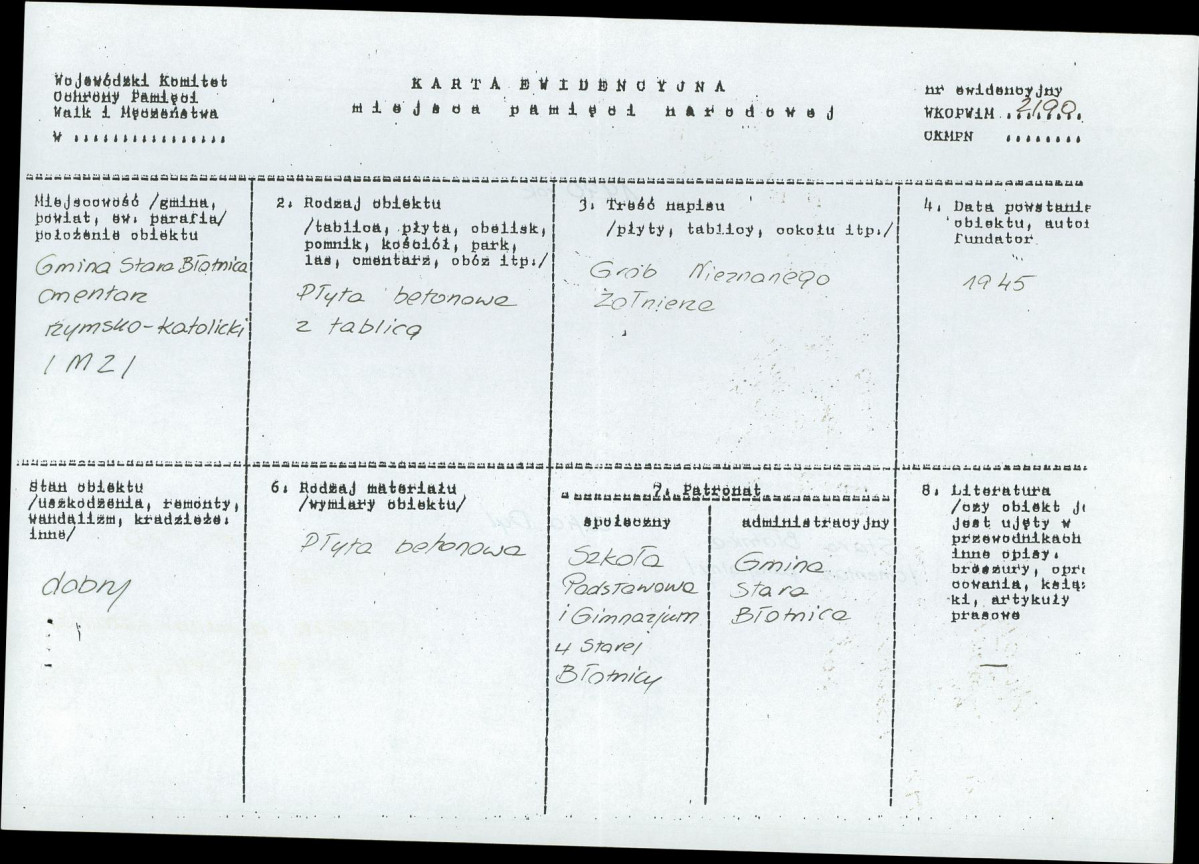 Wojewódzki Komitet
Ochrony Pamięci
Walk i Męczeństwa
w ................
KARTA EWIDENCYJNA
miejsca pamięci narodowej
nr ewidencyjny
WKOPWiM 2190
OKMPN ........
Miejscowość /gmina,
powiat, ew. parafia/
położenie obiektu
Gmina Stara Błotnica
cmentarz
rzymsko-katolicki
/ M Z /
2. Rodzaj obiektu
/tablica, płyta, obelisk,
pomnik, kościół, park,
las, cmentarz, obóz itp./
Płyta betonowa
z tablicą
3. Treść napisu
/płyty, tablicy, cokołu itp./
Grób Nieznanego
Żołnierza
4. Data powstanie
obiektu, autor
fundator
1945
Stan obiektu
/uszkodzenia, remonty,
wandalizm, kradzieże.
inne/
dobry
6. Rodzaj materiału
/wymiary obiektu/
Płyta betonowa
7. Patronat
społeczny
Szkoła
Podstawowa
i Gimnazjum
w Starej
Błotnicy
administracyjny
Gmina
Stara
Błotnica
8. Literatura
/czy obiekt je
jest ujęty w
przewodnikach
inne opisy.
broszury, opra
cowania, książ
ki, artykuły
prasowe
—